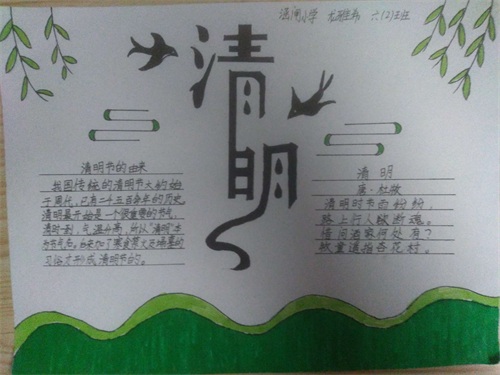 小学 六(2)班
清明
清明节的由来
我国传统的清明节大约始
于周代,已有二千五百多年的历史。
清明最开始是一个很重要的节气,
清明一到,气温升高,所以“清明”
为节气名。后来加了寒食禁火及扫墓的
习俗才形成清明节的。
清 明
唐·杜牧
清明时节雨纷纷,
路上行人欲断魂。
借问酒家何处有?
牧童遥指杏花村。